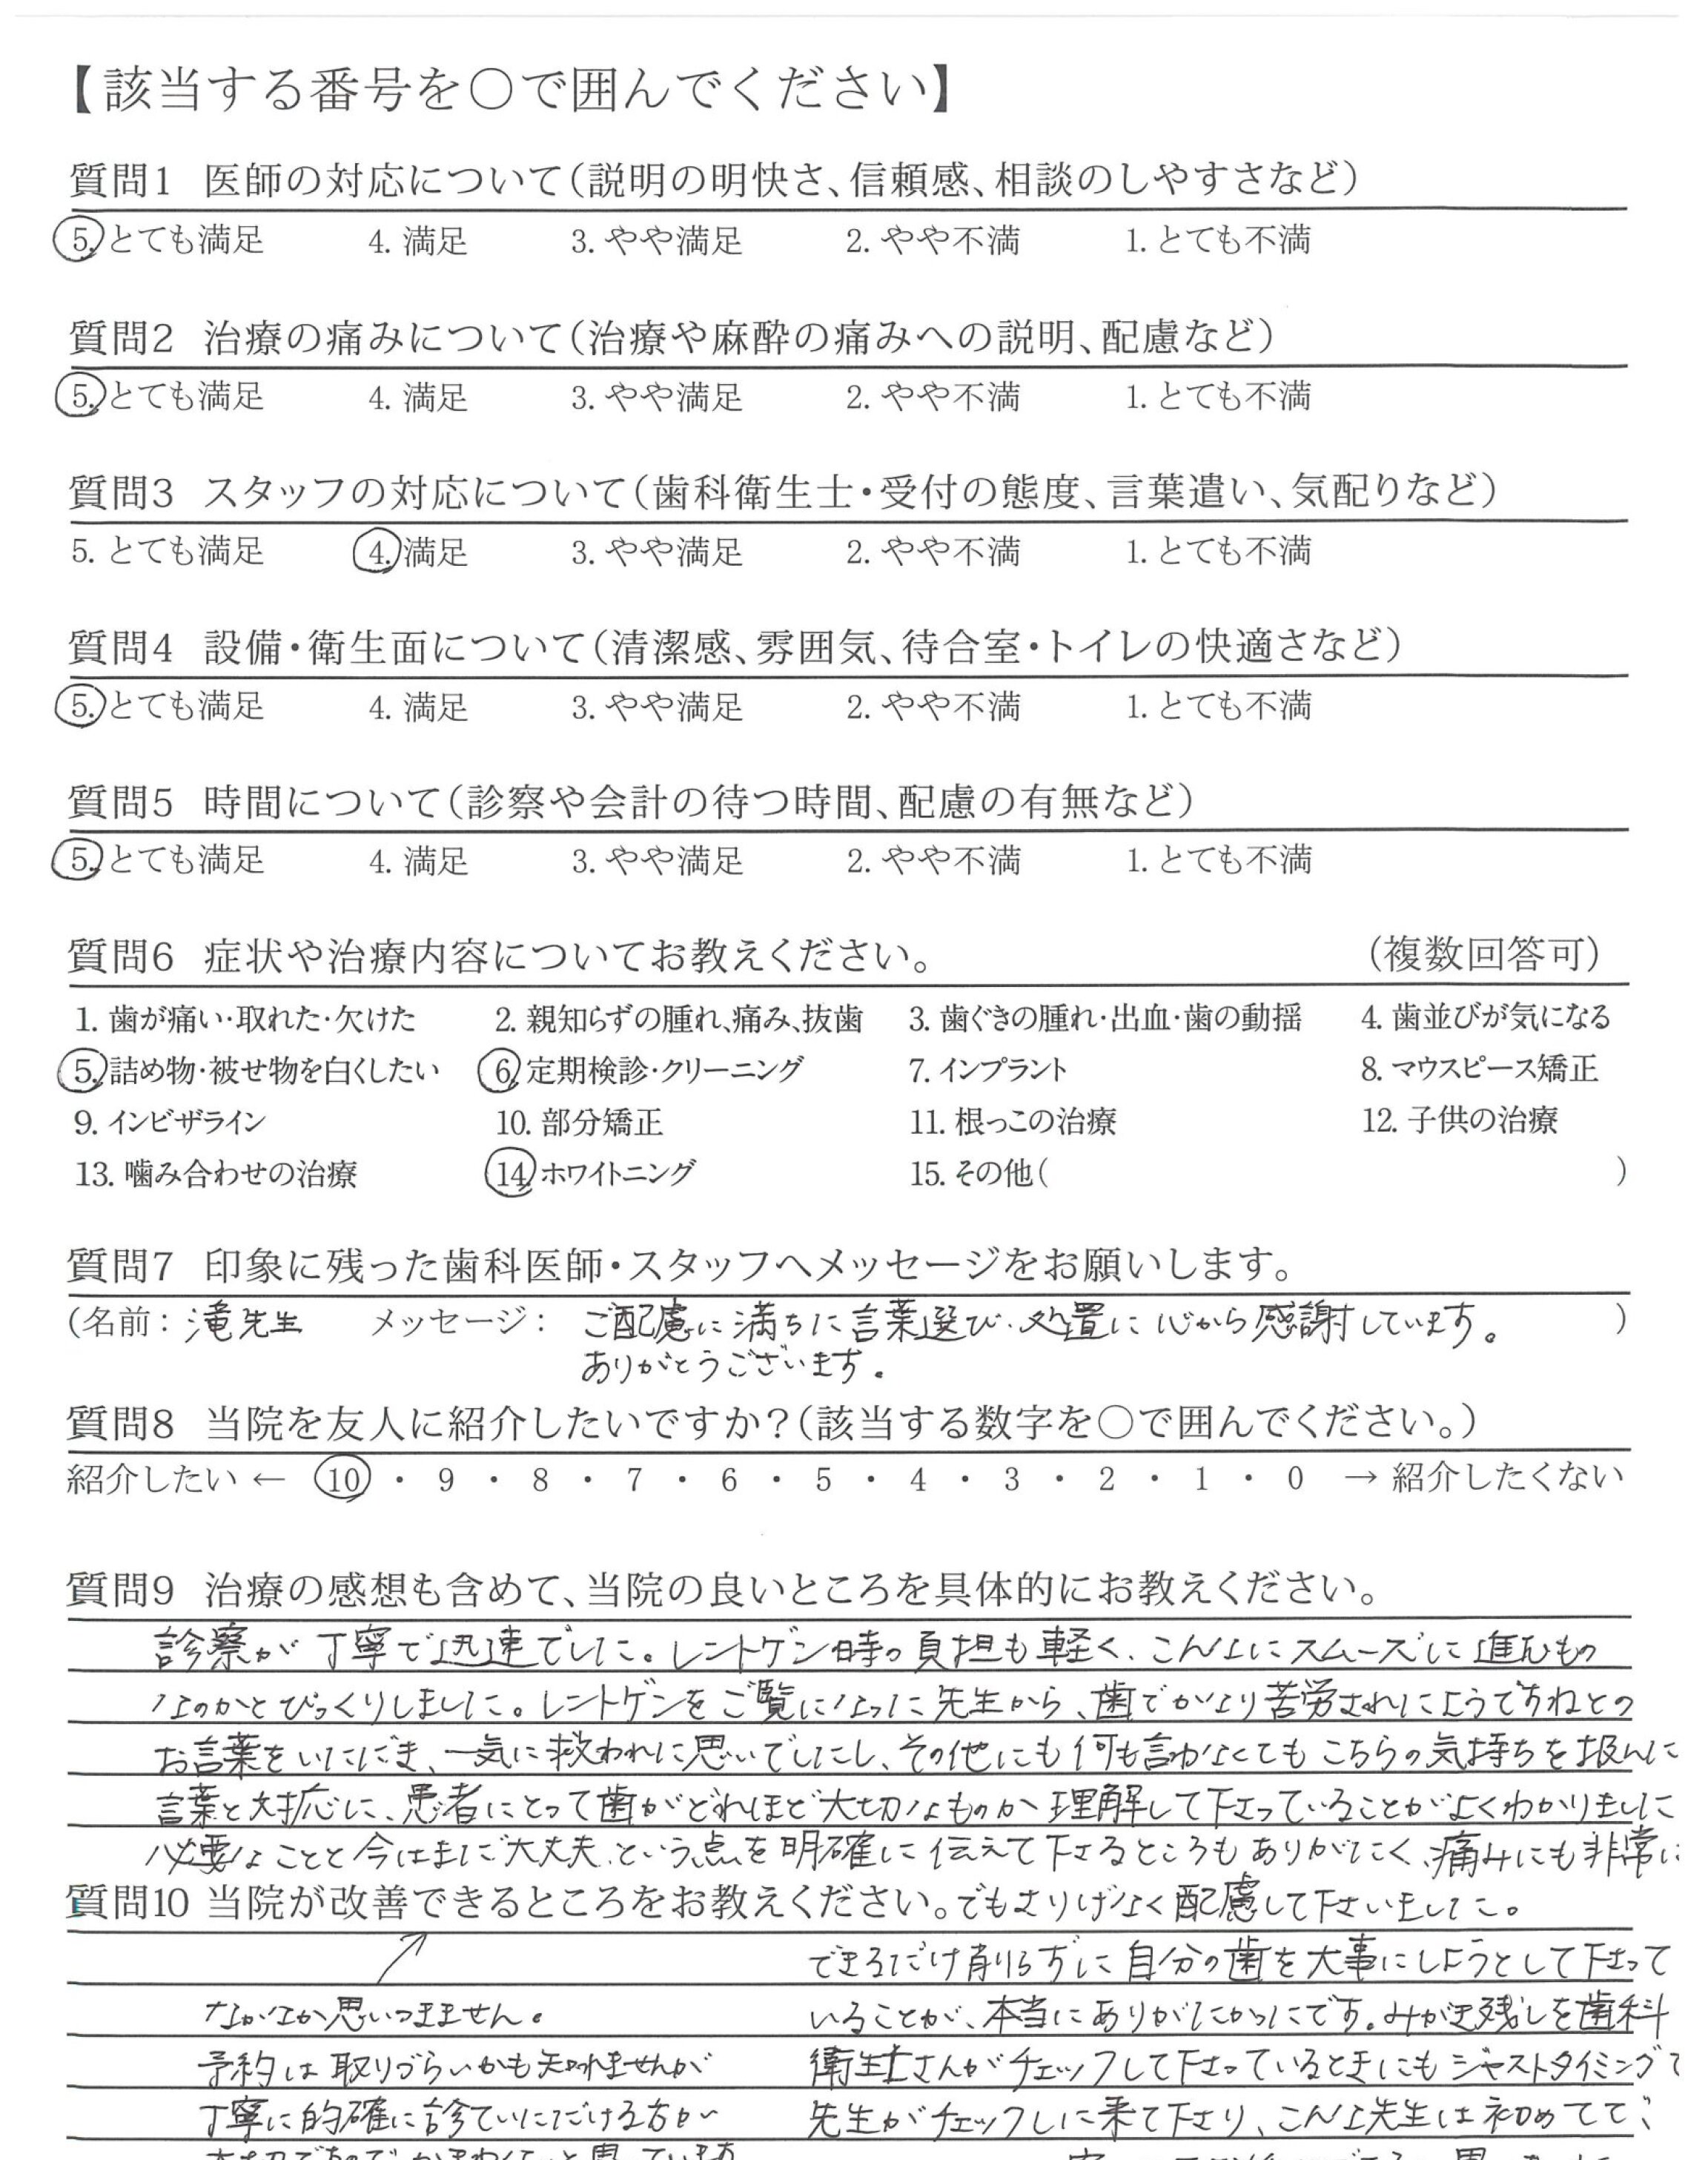 【該当する番号を○で囲んでください】
質問1 医師の対応について(説明の明快さ、信頼感、相談のしやすさなど)
5. とても満足 4. 満足 3. やや満足 2. やや不満 1. とても不満
質問2 治療の痛みについて(治療や麻酔の痛みへの説明、配慮など)
5. とても満足 4. 満足 3. やや満足 2. やや不満 1. とても不満
質問3 スタッフの対応について(歯科衛生士・受付の態度、言葉遣い、気配りなど)
5. とても満足 4. 満足 3. やや満足 2. やや不満 1. とても不満
質問4 設備・衛生面について(清潔感、雰囲気、待合室・トイレの快適さなど)
5. とても満足 4. 満足 3. やや満足 2. やや不満 1. とても不満
質問5 時間について(診察や会計の待つ時間、配慮の有無など)
5. とても満足 4. 満足 3. やや満足 2. やや不満 1. とても不満
質問6 症状や治療内容についてお教えください。 (複数回答可)
1. 歯が痛い・取れた・欠けた 2. 親知らずの腫れ、痛み、抜歯 3. 歯ぐきの腫れ・出血・歯の動揺 4. 歯並びが気になる
5. 詰め物・被せ物を白くしたい 6. 定期検診・クリーニング 7. インプラント 8. マウスピース矯正
9. インビザライン 10. 部分矯正 11. 根っこの治療 12. 子供の治療
13. 噛み合わせの治療 14. ホワイトニング 15. その他( )
質問7 印象に残った歯科医師・スタッフへメッセージをお願いします。
(名前: 滝先生 メッセージ: ご配慮に満ちた言葉選び、処置に心から感謝しています。 )
ありがとうございます。
質問8 当院を友人に紹介したいですか?(該当する数字を○で囲んでください。)
紹介したい ← 10 ・ 9 ・ 8 ・ 7 ・ 6 ・ 5 ・ 4 ・ 3 ・ 2 ・ 1 ・ 0 → 紹介したくない
質問9 治療の感想も含めて、当院の良いところを具体的にお教えください。
診察が丁寧で迅速でした。レントゲン時の負担も軽く、こんなにスムーズに進むもの
なのかとびっくりしました。レントゲンをご覧になった先生から、歯でかなり苦労されたようですねとの
お言葉をいただき、一気に救われた思いでしたし、その他にも何も言わなくてもこちらの気持ちを扱んだ
言葉と対応に、患者にとって歯がどれほど大切なものか理解して下さっていることがよくわかりました
必要なことと今はまだ大丈夫、という点を明確に伝えて下さるところもありがたく、痛みにも非常に
質問10 当院が改善できるところをお教えください。でもさりげなく配慮して下さいました。
できるだけ削らずに自分の歯を大事にしようとして下さって
なかなか思いつきません。 いることが、本当にありがたかったです。みがき残しを歯科
予約は取りづらいかも知れませんが 衛生士さんがチェックして下さっているときにもジャストタイミングで
丁寧に的確に診ていただける方が 先生がチェックしに来て下さり、こんな先生は初めてで、